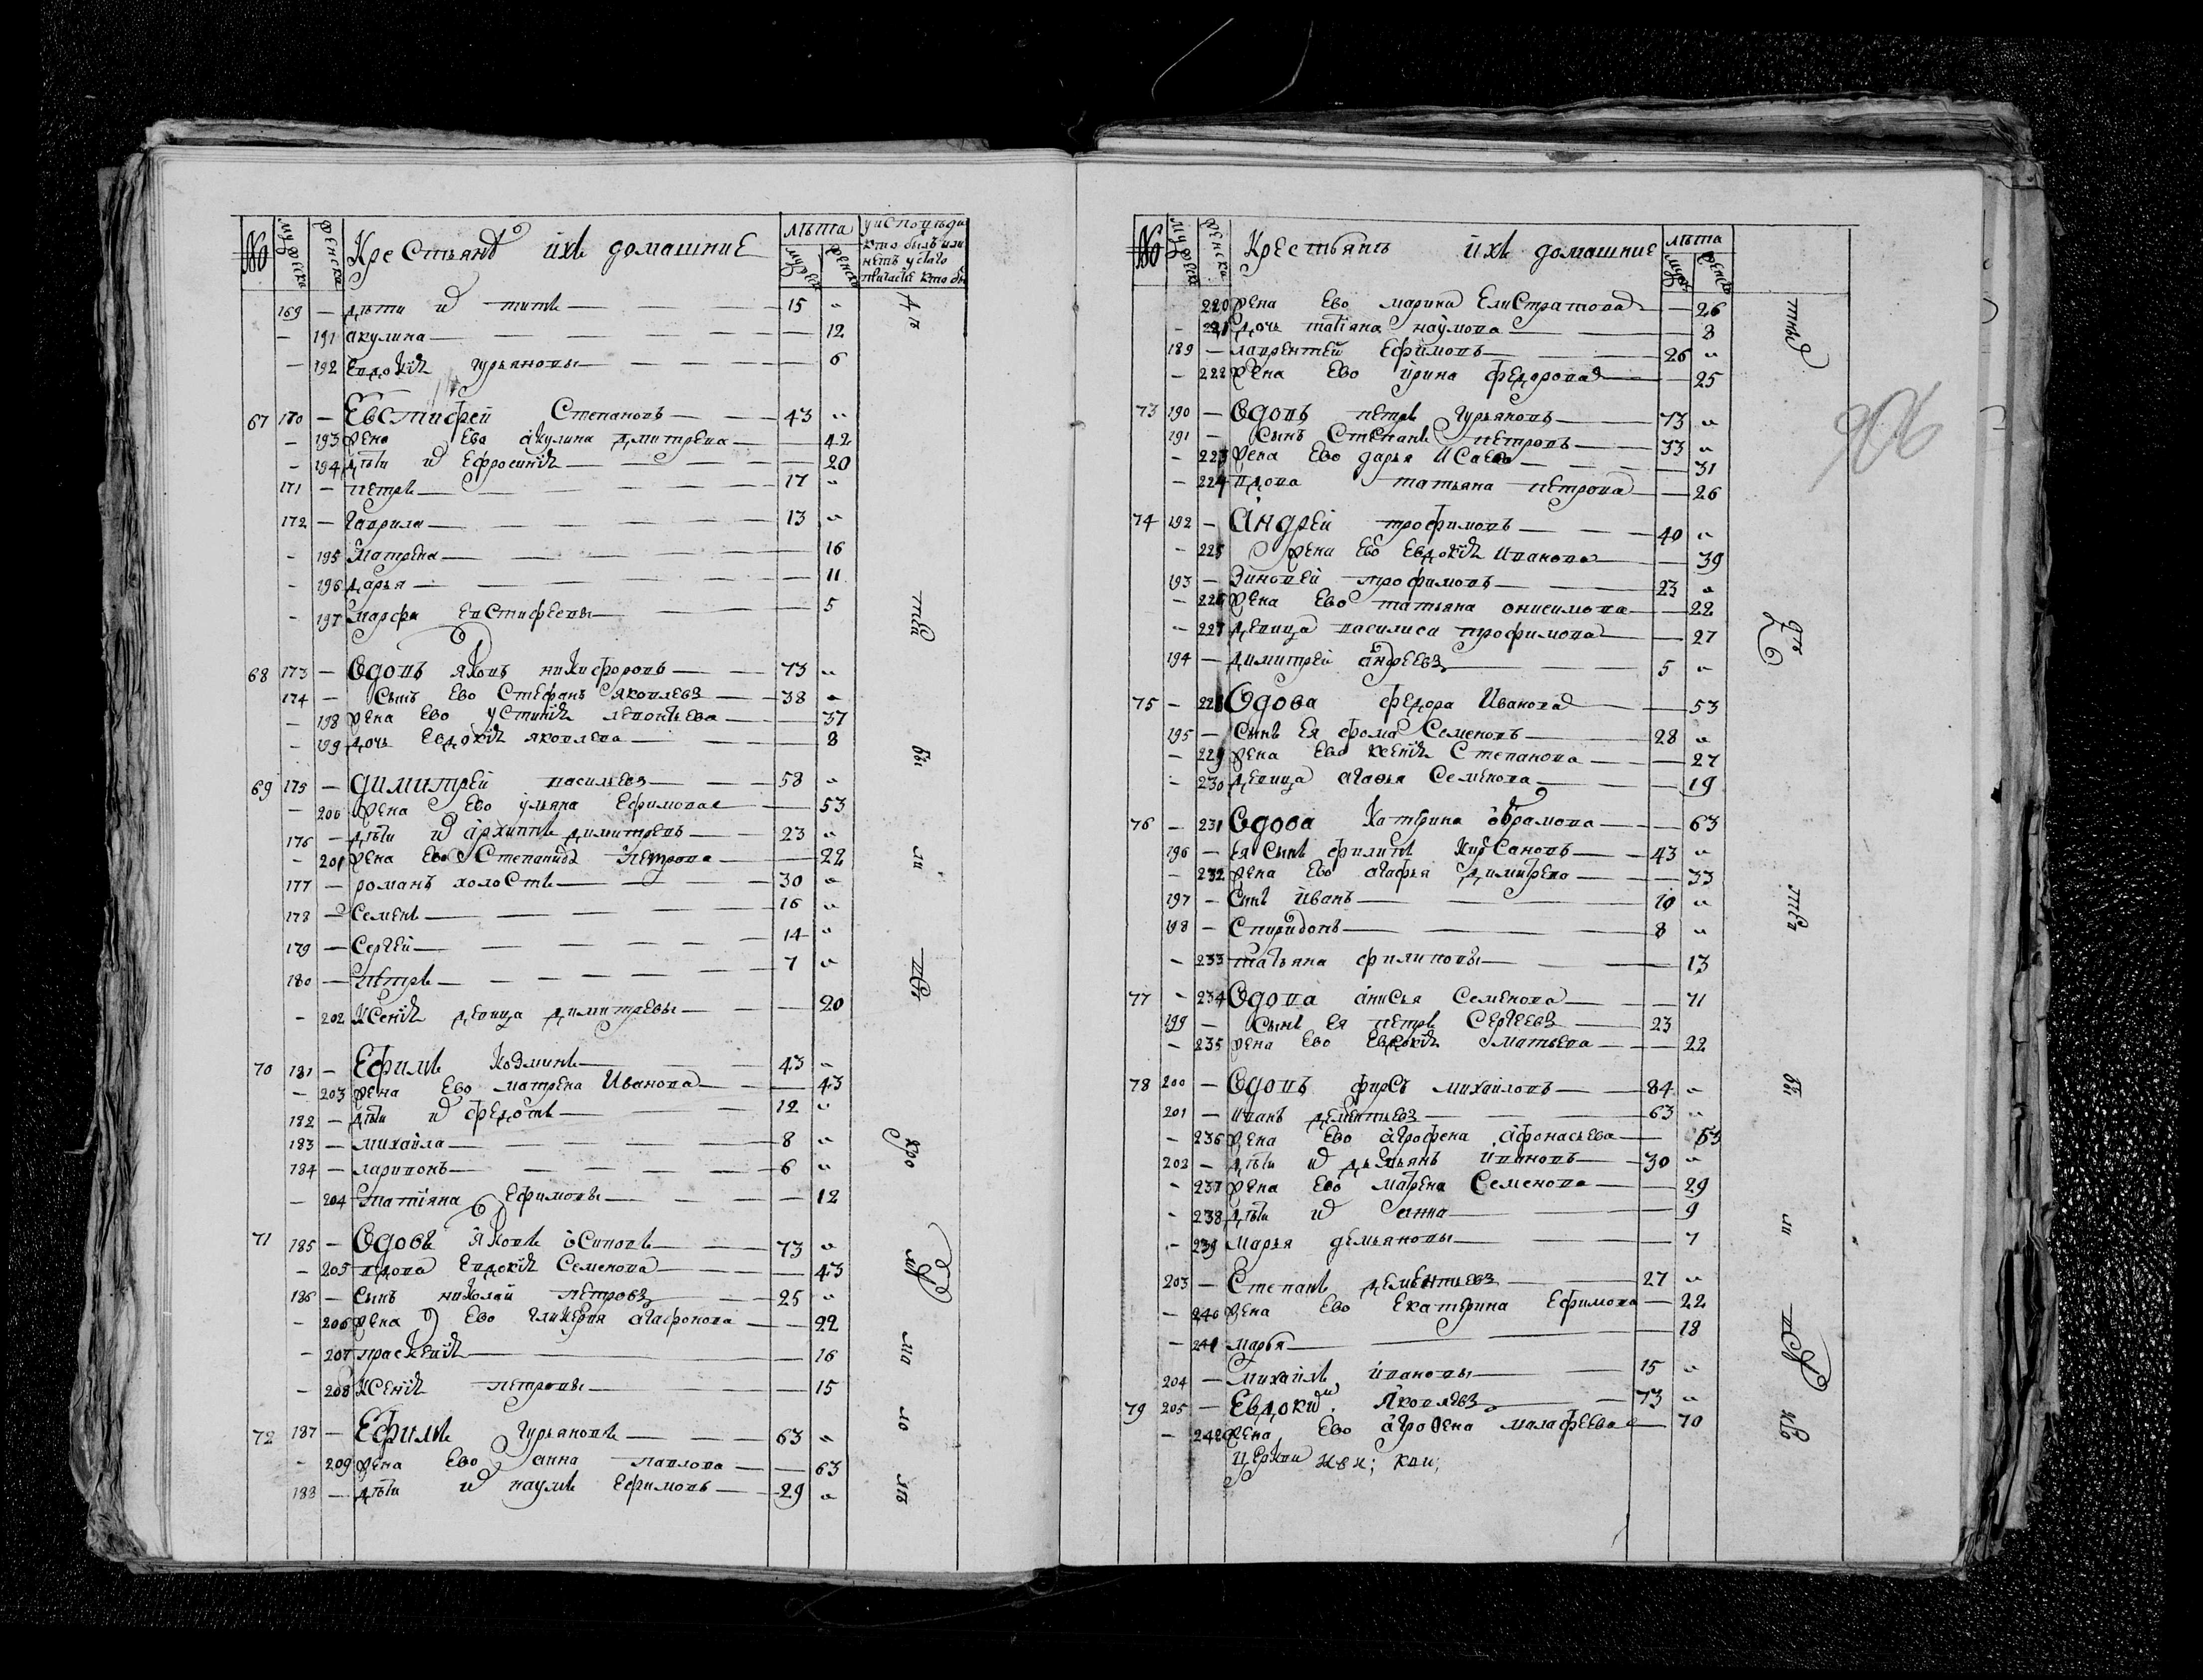 № мужеска женска Крестьянъ ихъ домашние лѣта мужеск женска у исповѣди кто былъ или нетъ у святаго причастiя кто бы
169 — дѣти их титъ — 15 "
— 191 акулина — — 12
— 192 Евдокия гурьяновы — — 6
67 170 — Евстифей Степановъ — 43 "
— 193 жена Ево акулина дмитрева — — 42
— 194 дѣти их Ефросиния — — 20
171 — петръ — 17 "
172 — гаврила — 13 "
— 195 Матрена — — 16
— 196 дарья — — 11
— 197 марфа Евстифеевы — — 5
68 173 — Вдовъ яковъ никифоровъ — 73 "
174 — Сынъ Ево Стефанъ яковлевъ — 38 "
— 198 жена Ево устиния левонтьева — — 37
— 199 дочь Евдокия яковлева — — 8
69 175 — Димитрей васильевъ — 58 "
— 200 жена Ево ульяна Ефимова — — 53
176 — дѣти их архиппъ димитревъ — 23 "
— 201 жена Ево Степанида петрова — — 22
177 — романъ холостъ — 30 "
178 — Семенъ — 16 "
179 — Сергей — 14 "
180 — Петръ — 7 "
— 202 Ксения девица димитревы — — 20
70 181 — Ефимъ Козминъ — 43 "
— 203 жена Ево матрена Иванова — — 43
182 — дѣти их федотъ — 12 "
183 — михайла — 8 "
184 — ларивонъ — 6 "
— 204 татiяна Ефимовы — — 12
71 185 — Вдовъ яковъ осиповъ — 73 "
— 205 вдова Евдокия Семенова — — 43
186 — Сынъ николай петровъ — 25 "
— 206 жена Ево гликерия агафонова — — 22
— 207 прасковия — — 16
— 208 Ксения петровы — — 15
72 187 — Ефимъ гурьяновъ — 63 "
— 209 жена Ево анна павлова — — 63
188 — дѣти их наумъ Ефимовъ — 29 "
№ мужеска женска Крестьянъ ихъ домашние лѣта мужеск женска
220 жена Ево марина Елистратова — — 26
— 221 дочь татiяна наумова — — 8
189 — лаврентей Ефимовъ — 26 "
— 222 жена Ево ирина федорова — — 25
73 190 — Вдовъ петръ гурьяновъ — 73 "
191 — Сынъ Степанъ петровъ — 33 "
— 223 жена Ево дарья Исаева — — 31
— 224 вдова татьяна петрова — — 26
74 192 — Андрей трофимовъ — 40 "
— 225 жена Ево Евдокия Иванова — — 39
193 — Зиновей трофимовъ — 23 "
— 226 жена Ево татьяна онисимова — — 22
— 227 девица василиса трофимова — — 27
194 — димитрей андреевъ — 5 "
75 — 228 Вдова федора Иванова — — 53
195 — Сынъ Ея фома Семеновъ — 28 "
— 229 жена Ево ксения Степанова — — 27
— 230 девица агафья Семенова — — 19
76 — 231 Вдова Катерина обрамова — — 63
196 — Ея Сынъ филипъ Кирсановъ — 43 "
— 232 жена Ево агафья димитрева — — 33
197 — Снъ иванъ — 10 "
198 — Спиридонъ — 8 "
— 233 татьяна филиповы — — 13
77 — 234 Вдова анисья Семенова — — 71
199 — Сынъ Ея петръ Сергеевъ — 23
— 235 жена Ево Евдокия матвева — — 22
78 200 — Вдовъ фирсъ михайловъ — 84 "
201 — иванъ дементьевъ — 63 "
— 236 жена Ево аграфена афонасьева — — 53
202 — дѣти их демьянъ ивановъ — 30 "
— 237 жена Ево матрена Семенова — — 29
— 238 дѣти их анна — — 9
— 239 марья демьяновы — — 7
203 — Степанъ дементьевъ — 27 "
— 240 жена Ево Екатерина Ефимова — 22
— 241 марья — — 18
204 — михайлъ ивановы — 15 "
79 205 — Евдоким яковлевъ — 73 "
— 242 жена Ево аграфена малафеева — 70